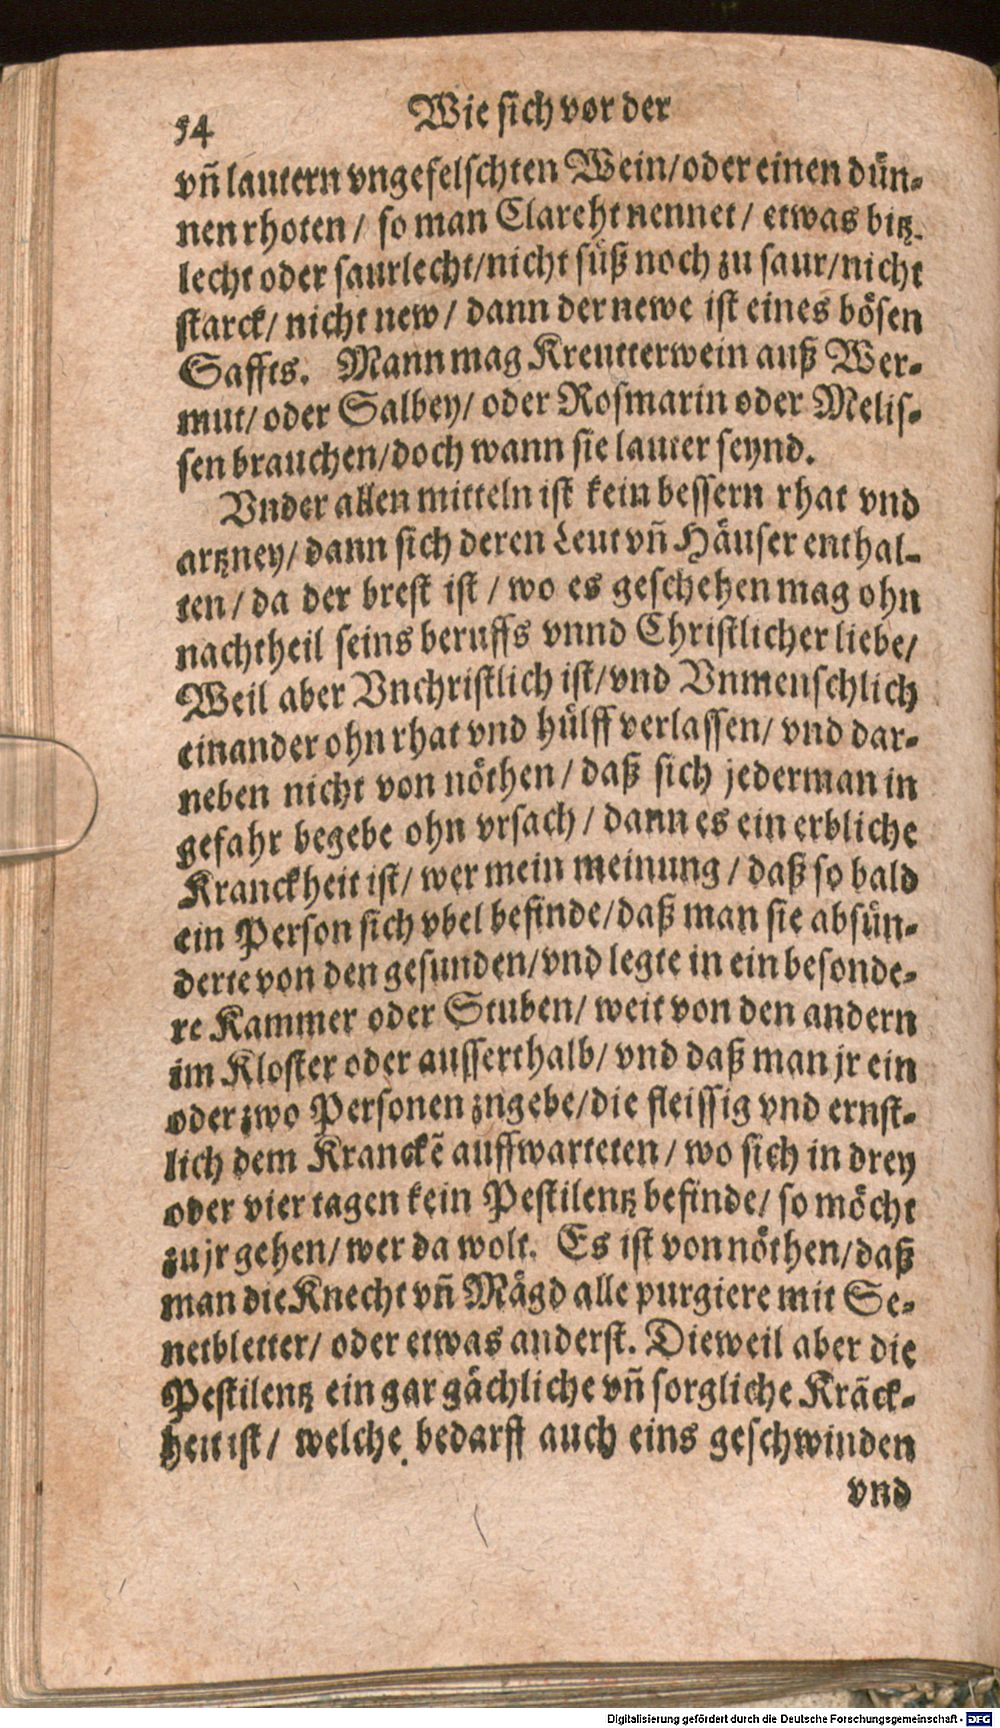 54
Wie sich vor der
vñ lautern vngefelschten Wein/oder einen dün-
nen rhoten/ so man Clareht nennet/ etwas bitz-
lecht oder saurlecht/nicht süß noch zu saur/nicht
starck/ nicht new/ dann der newe ist eines bösen
Saffts. Mann mag Kreutterwein auß Wer-
mut/ oder Salbey/ oder Rosmarin oder Melis-
sen brauchen/doch wann sie lauter seynd.
Vnder allen mitteln ist kein bessern rhat vnd
artzney/ dann sich deren Leut vñ Häuser enthal-
ten/ da der brest ist/ wo es geschehen mag ohn
nachtheil seins beruffs vnnd Christlicher liebe/
Weil aber Vnchristlich ist/vnd Vnmenschlich
einander ohn rhat vnd hülff verlassen/ vnd dar-
neben nicht von nöthen/ daß sich jederman in
gefahr begebe ohn vrsach/ dann es ein erbliche
Kranckheit ist/ wer mein meinung/ daß so bald
ein Person sich vbel befinde/daß man sie absün-
derte von den gesunden/vnd legte in ein besonde-
re Kammer oder Stuben/ weit von den andern
im Kloster oder ausserthalb/ vnd daß man jr ein
oder zwo Personen zngebe/die fleissig vnd ernst-
lich dem Kranckẽ auffwarteten/ wo sich in drey
oder vier tagen kein Pestilentz befinde/ so möcht
zu jr gehen/ wer da wolt. Es ist von nöthen/daß
man die Knecht vñ Mägd alle purgiere mit Se-
netbletter/ oder etwas anderst. Dieweil aber die
Pestilentz ein gar gächliche vñ sorgliche Kräck-
heit ist/ welche bedarff auch eins geschwinden
vnd
Digitalisierung gefördert durch die Deutsche Forschungsgemeinschaft - DFG